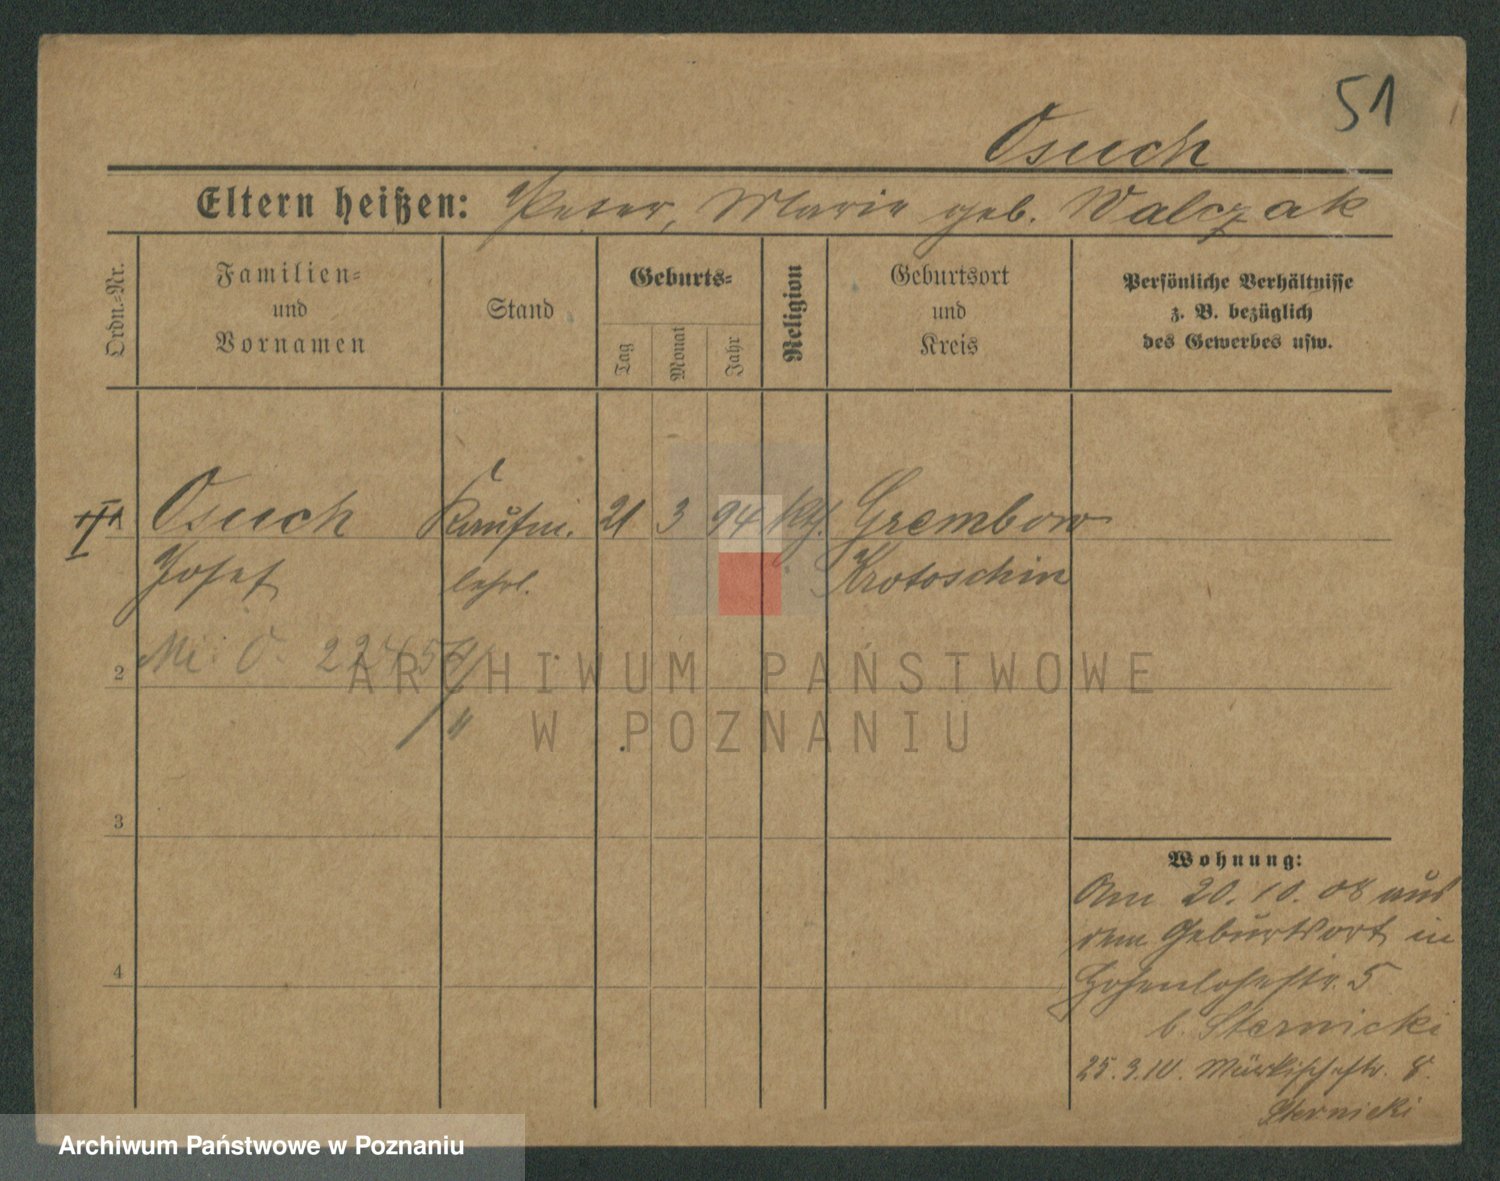 51
Osuch
Eltern heißen: Peter, Marie geb. Walczak
Ordn.-Nr.
Familien-
und
Vornamen
Stand
Geburts-
Tag
Monat
Jahr
Religion
Geburtsort
und
Kreis
Persönliche Verhältnisse
z. B. bezüglich
des Gewerbes usw.
Osuch Kaufm. 21 3 94 kth. Grembow
Josef lehrl. Krotoschin
2
3
4
Wohnung:
Am 20.10.08 aus
dem Geburtsort in
Hohenlohestr. 5
b. Sternicki
25.3.10. Märkischestr. 8.
Sternicki
ARCHIWUM PAŃSTWOWE
W POZNANIU
Archiwum Państwowe w Poznaniu